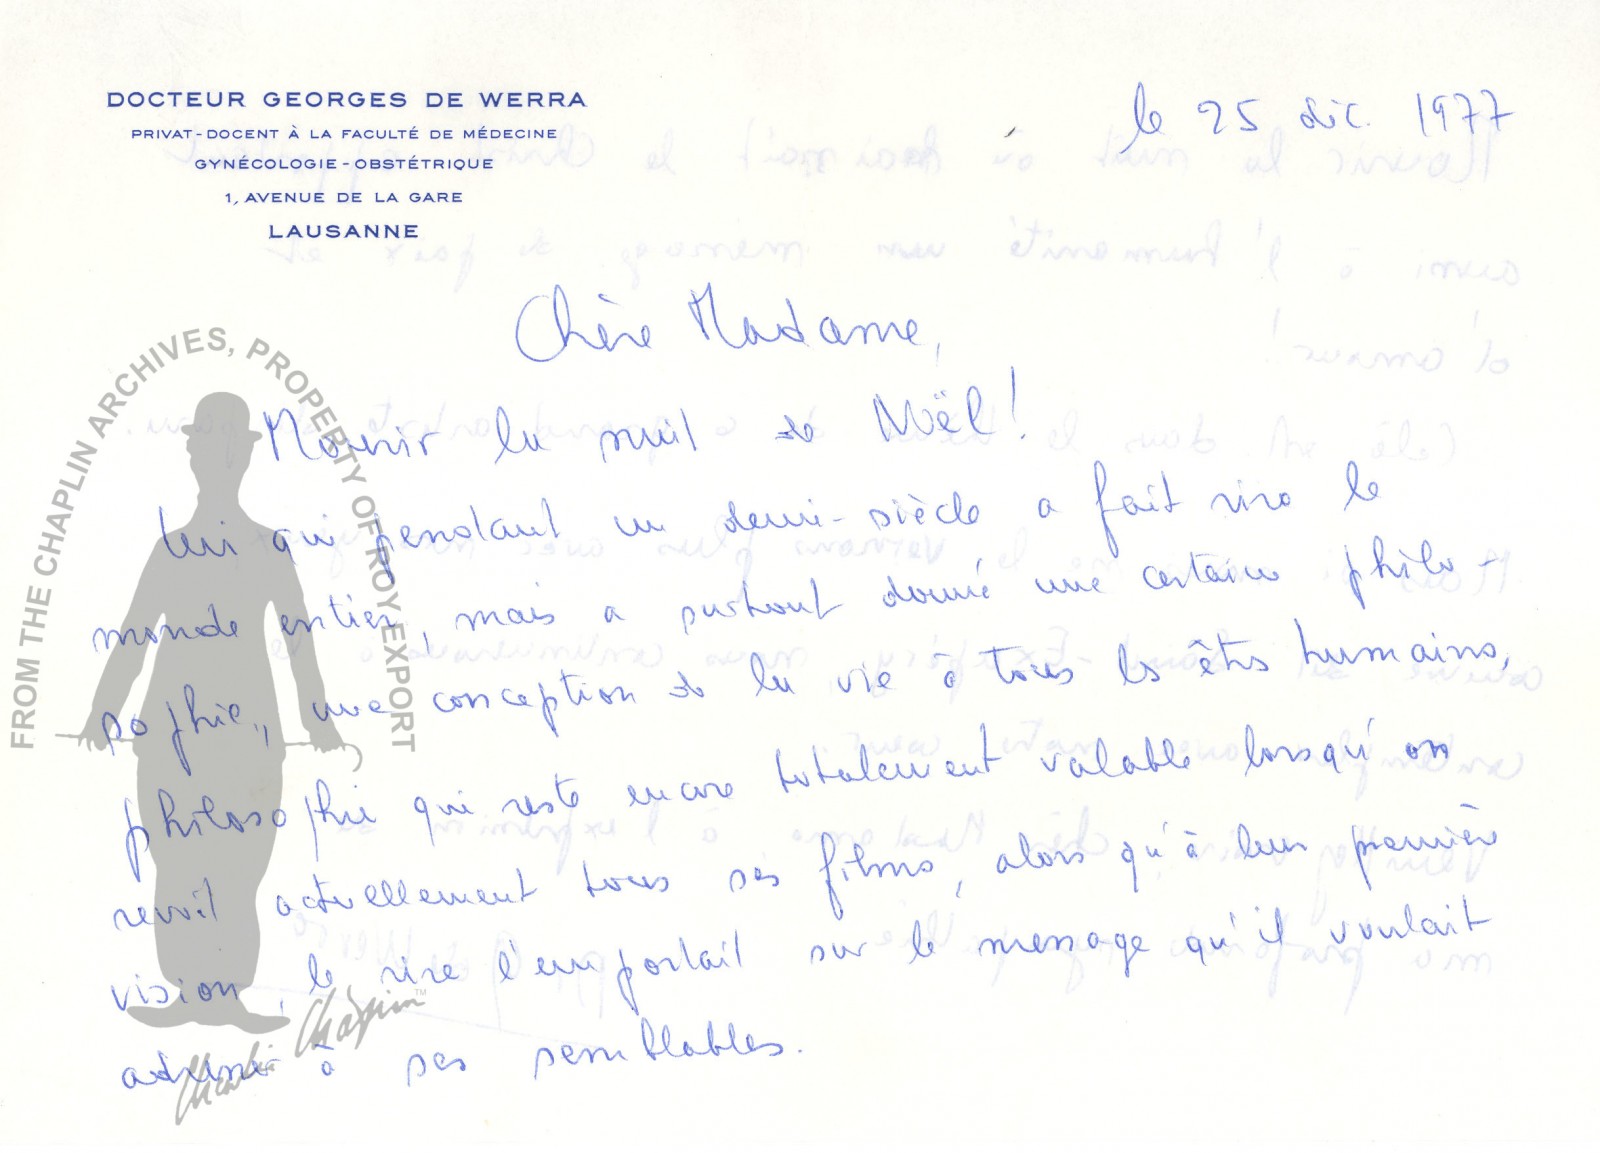 DOCTEUR GEORGES DE WERRA
PRIVAT-DOCENT À LA FACULTÉ DE MÉDECINE
GYNÉCOLOGIE-OBSTÉTRIQUE
1, AVENUE DE LA GARE
LAUSANNE
le 25 déc. 1977
Chère Madame,
Mourir la nuit de Noël!
Lui qui pendant un demi-siècle a fait rire le
monde entier, mais a surtout donné une certaine philo-
sophie, une conception de la vie à tous les êtres humains,
philosophie qui reste encore totalement valable lorsqu'on
revoit actuellement tous ses films, alors qu'à leur première
vision, le rire l'emportait sur le message qu'il voulait
adresser à ses semblables.
FROM THE CHAPLIN ARCHIVES, PROPERTY OF ROY EXPORT
Charlie Chaplin™